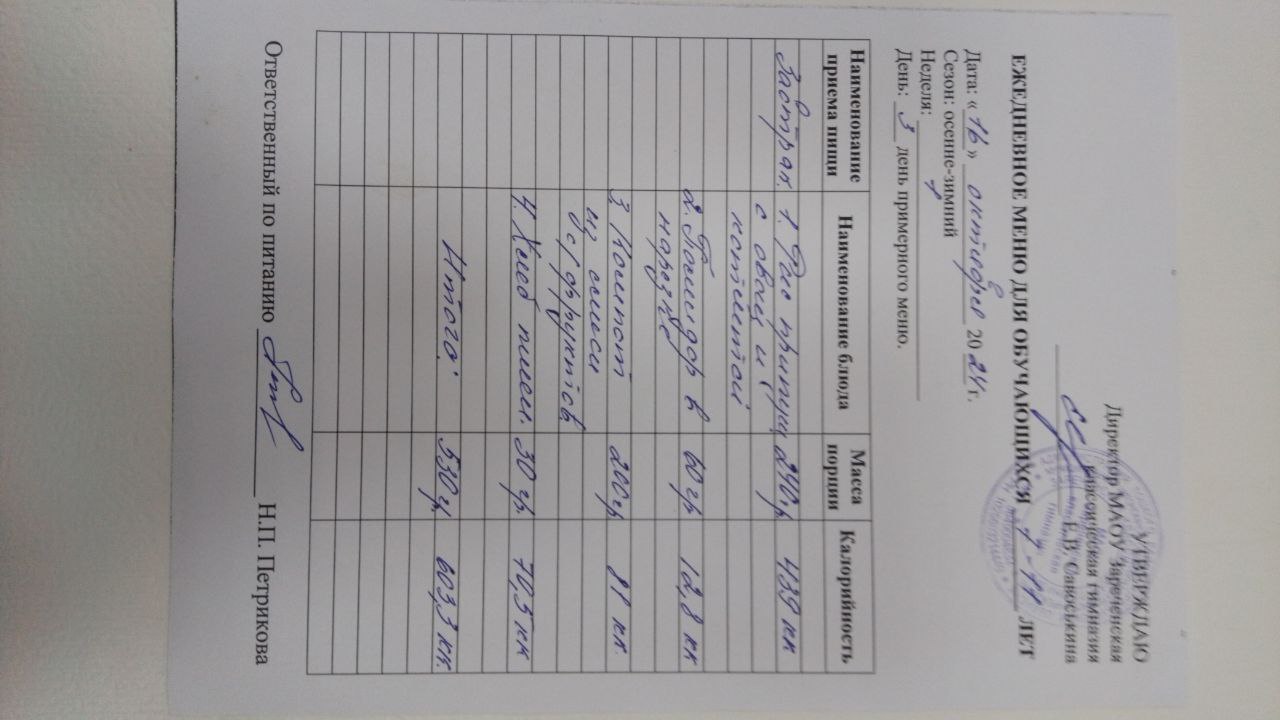 УТВЕРЖДАЮ
Директор МАОУ Зареченская
классическая гимназия
Е.В. Савоськина
ЕЖЕДНЕВНОЕ МЕНЮ ДЛЯ ОБУЧАЮЩИХСЯ 7-11 ЛЕТ
Дата: «16» октября 2024г.
Сезон: осенне-зимний
Неделя: 1
День: 3 день примерного меню.
Наименование приема пищи Наименование блюда Масса порции Калорийность
Завтрак. 1. Рис припущ 240гр 439 кк
с овощ и
котлетой
2. Помидор в 60гр 12,8 кк
нарезке
3. Компот 200гр 81 кк.
из смеси
с/фруктов
4. Хлеб пшен. 30 гр. 70,5 кк
Итого: 530гр 603,3 кк.
Ответственный по питанию Н.П. Петрикова